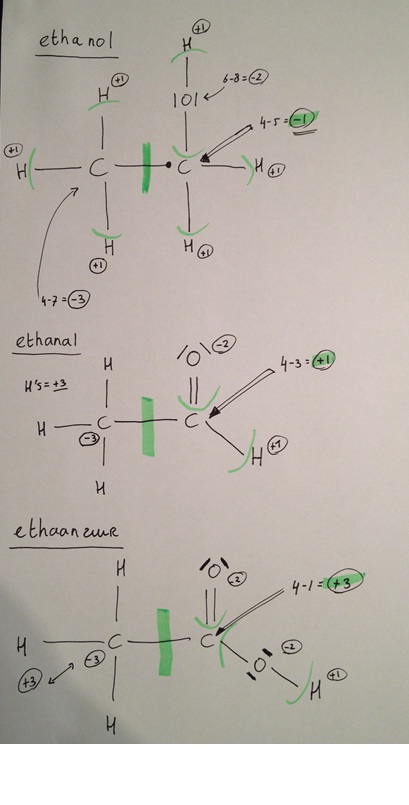 ethanol
H +1
H +1
|O|
6-8=-2
4-5=-1
+1
H
C
C
H +1
H
+1
H +1
4-7=-3
ethanal
H
O -2
4-3=+1
H'S=+3
H
C
-3
C
H +1
H
ethaanzuur
H
O
-2
4-1=+3
H
C
C
+3
-3
O
-2
H +1
H